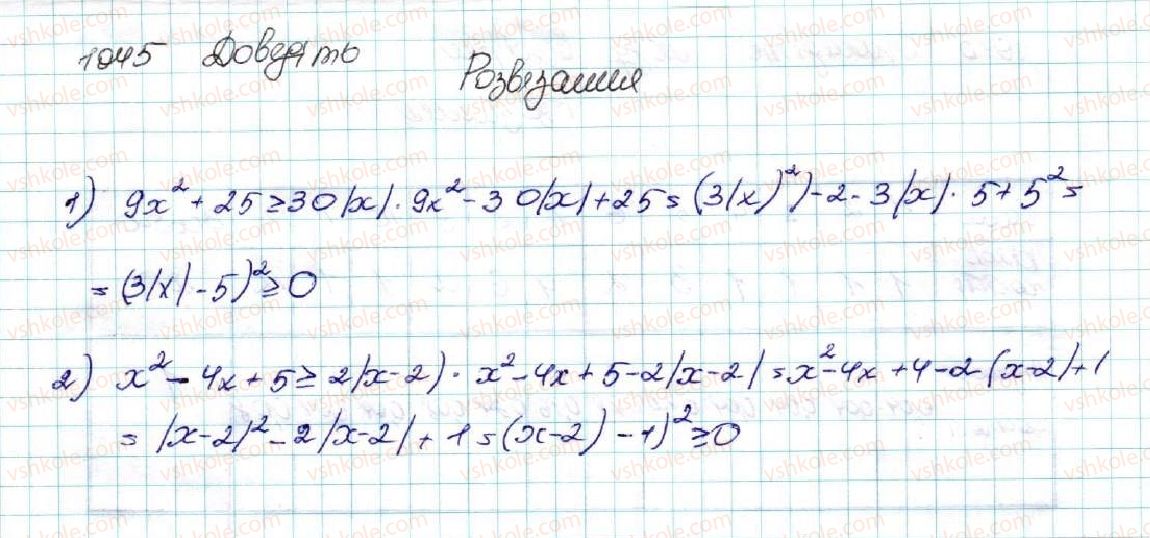 1045 Доведіть
Розвязання
1) 9x² + 25 ≥ 30|x| · 9x² - 30|x| + 25 = (3|x)²) - 2 - 3|x| · 5 + 5² =
= (3|x| - 5)² ≥ 0
2) x² - 4x + 5 ≥ 2|x-2) · x² - 4x + 5 - 2|x-2| = x² - 4x + 4 - 2(x-2| + 1
= |x-2|² - 2|x-2| + 1 = (x-2) - 1)² ≥ 0